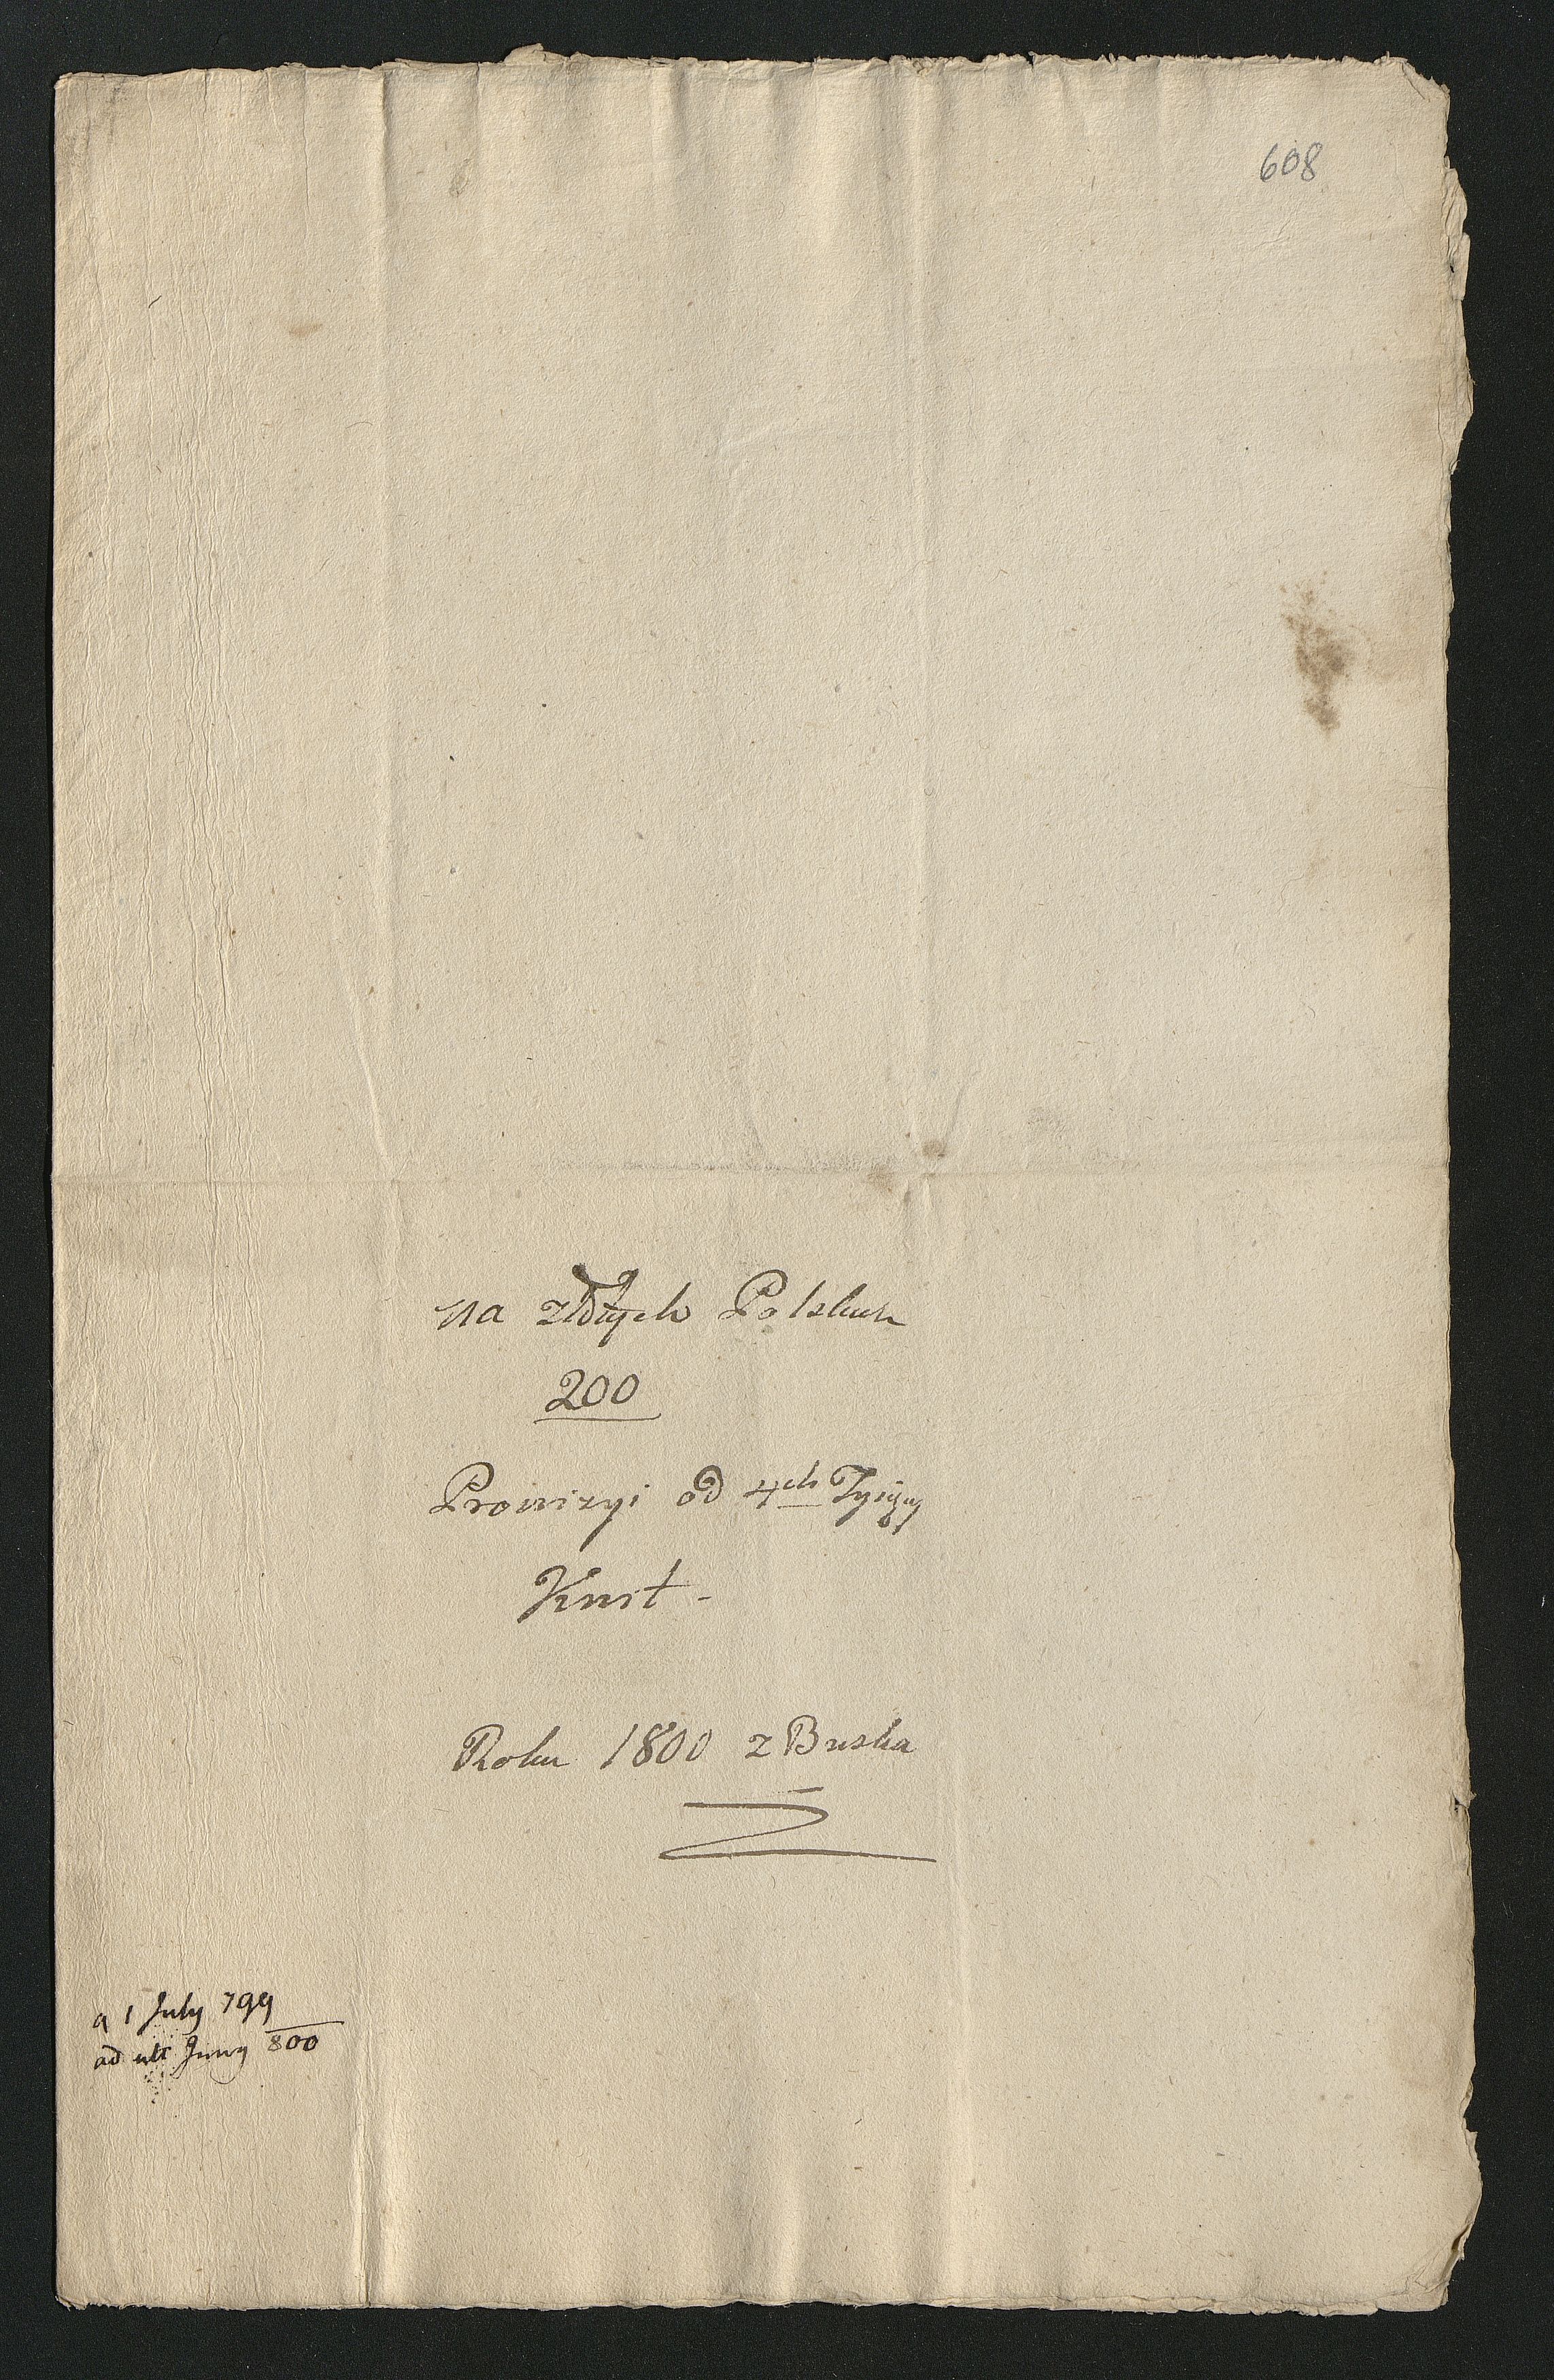 608
na złotych Polskich
200
Prowizyi od 4ch Tysięcy
Kwit -
Roku 1800 z Buska
a 1 July 799
ad ult Juny 800